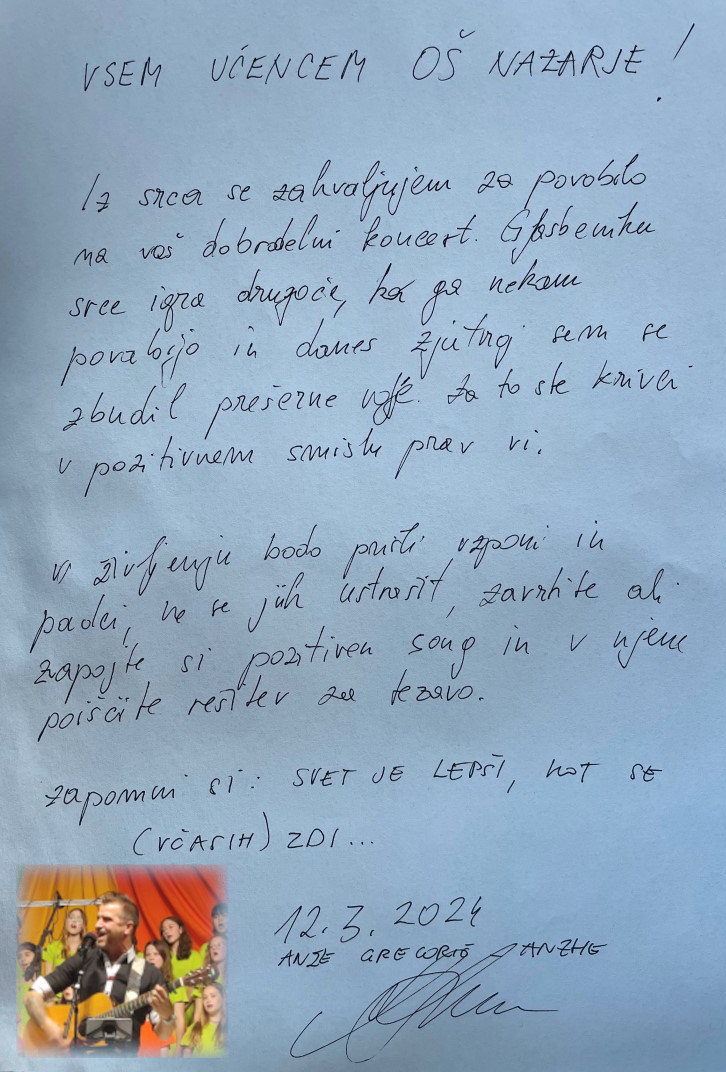 VSEM UČENCEM OŠ NAZARJE!
Iz srca se zahvaljujem za povabilo
na vaš dobrodelni koncert. Glasbeniku
srce igra drugače, ko ga nekam
povabijo in danes zjutraj sem se
zbudil prešerne volje. Za to ste krivci
v pozitivnem smislu prav vi.
V življenju bodo prišli vzponi in
padci, ne se jih ustrašit, zavrtite ali
zapojte si pozitiven song in v njem
poiščite rešitev za težavo.
Zapomni si: SVET JE LEPŠI, KOT SE
(VČASIH) ZDI...
12.3.2024
ANŽE GREGORIČ - ANZHE